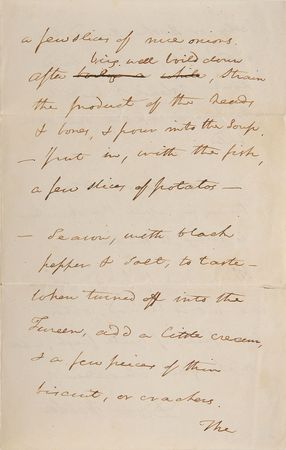 a few slices of nice onions.
being well boil'd down
after boiling a while, strain
the product of the heads
& bones, & pour into the Soup.
— put in, with the fish,
a few slices of potatos —
— Season, with black
pepper & salt, to taste —
When turned off into the
Tureen, add a little cream,
& a few pieces of thin
biscuit, or crackers.
The